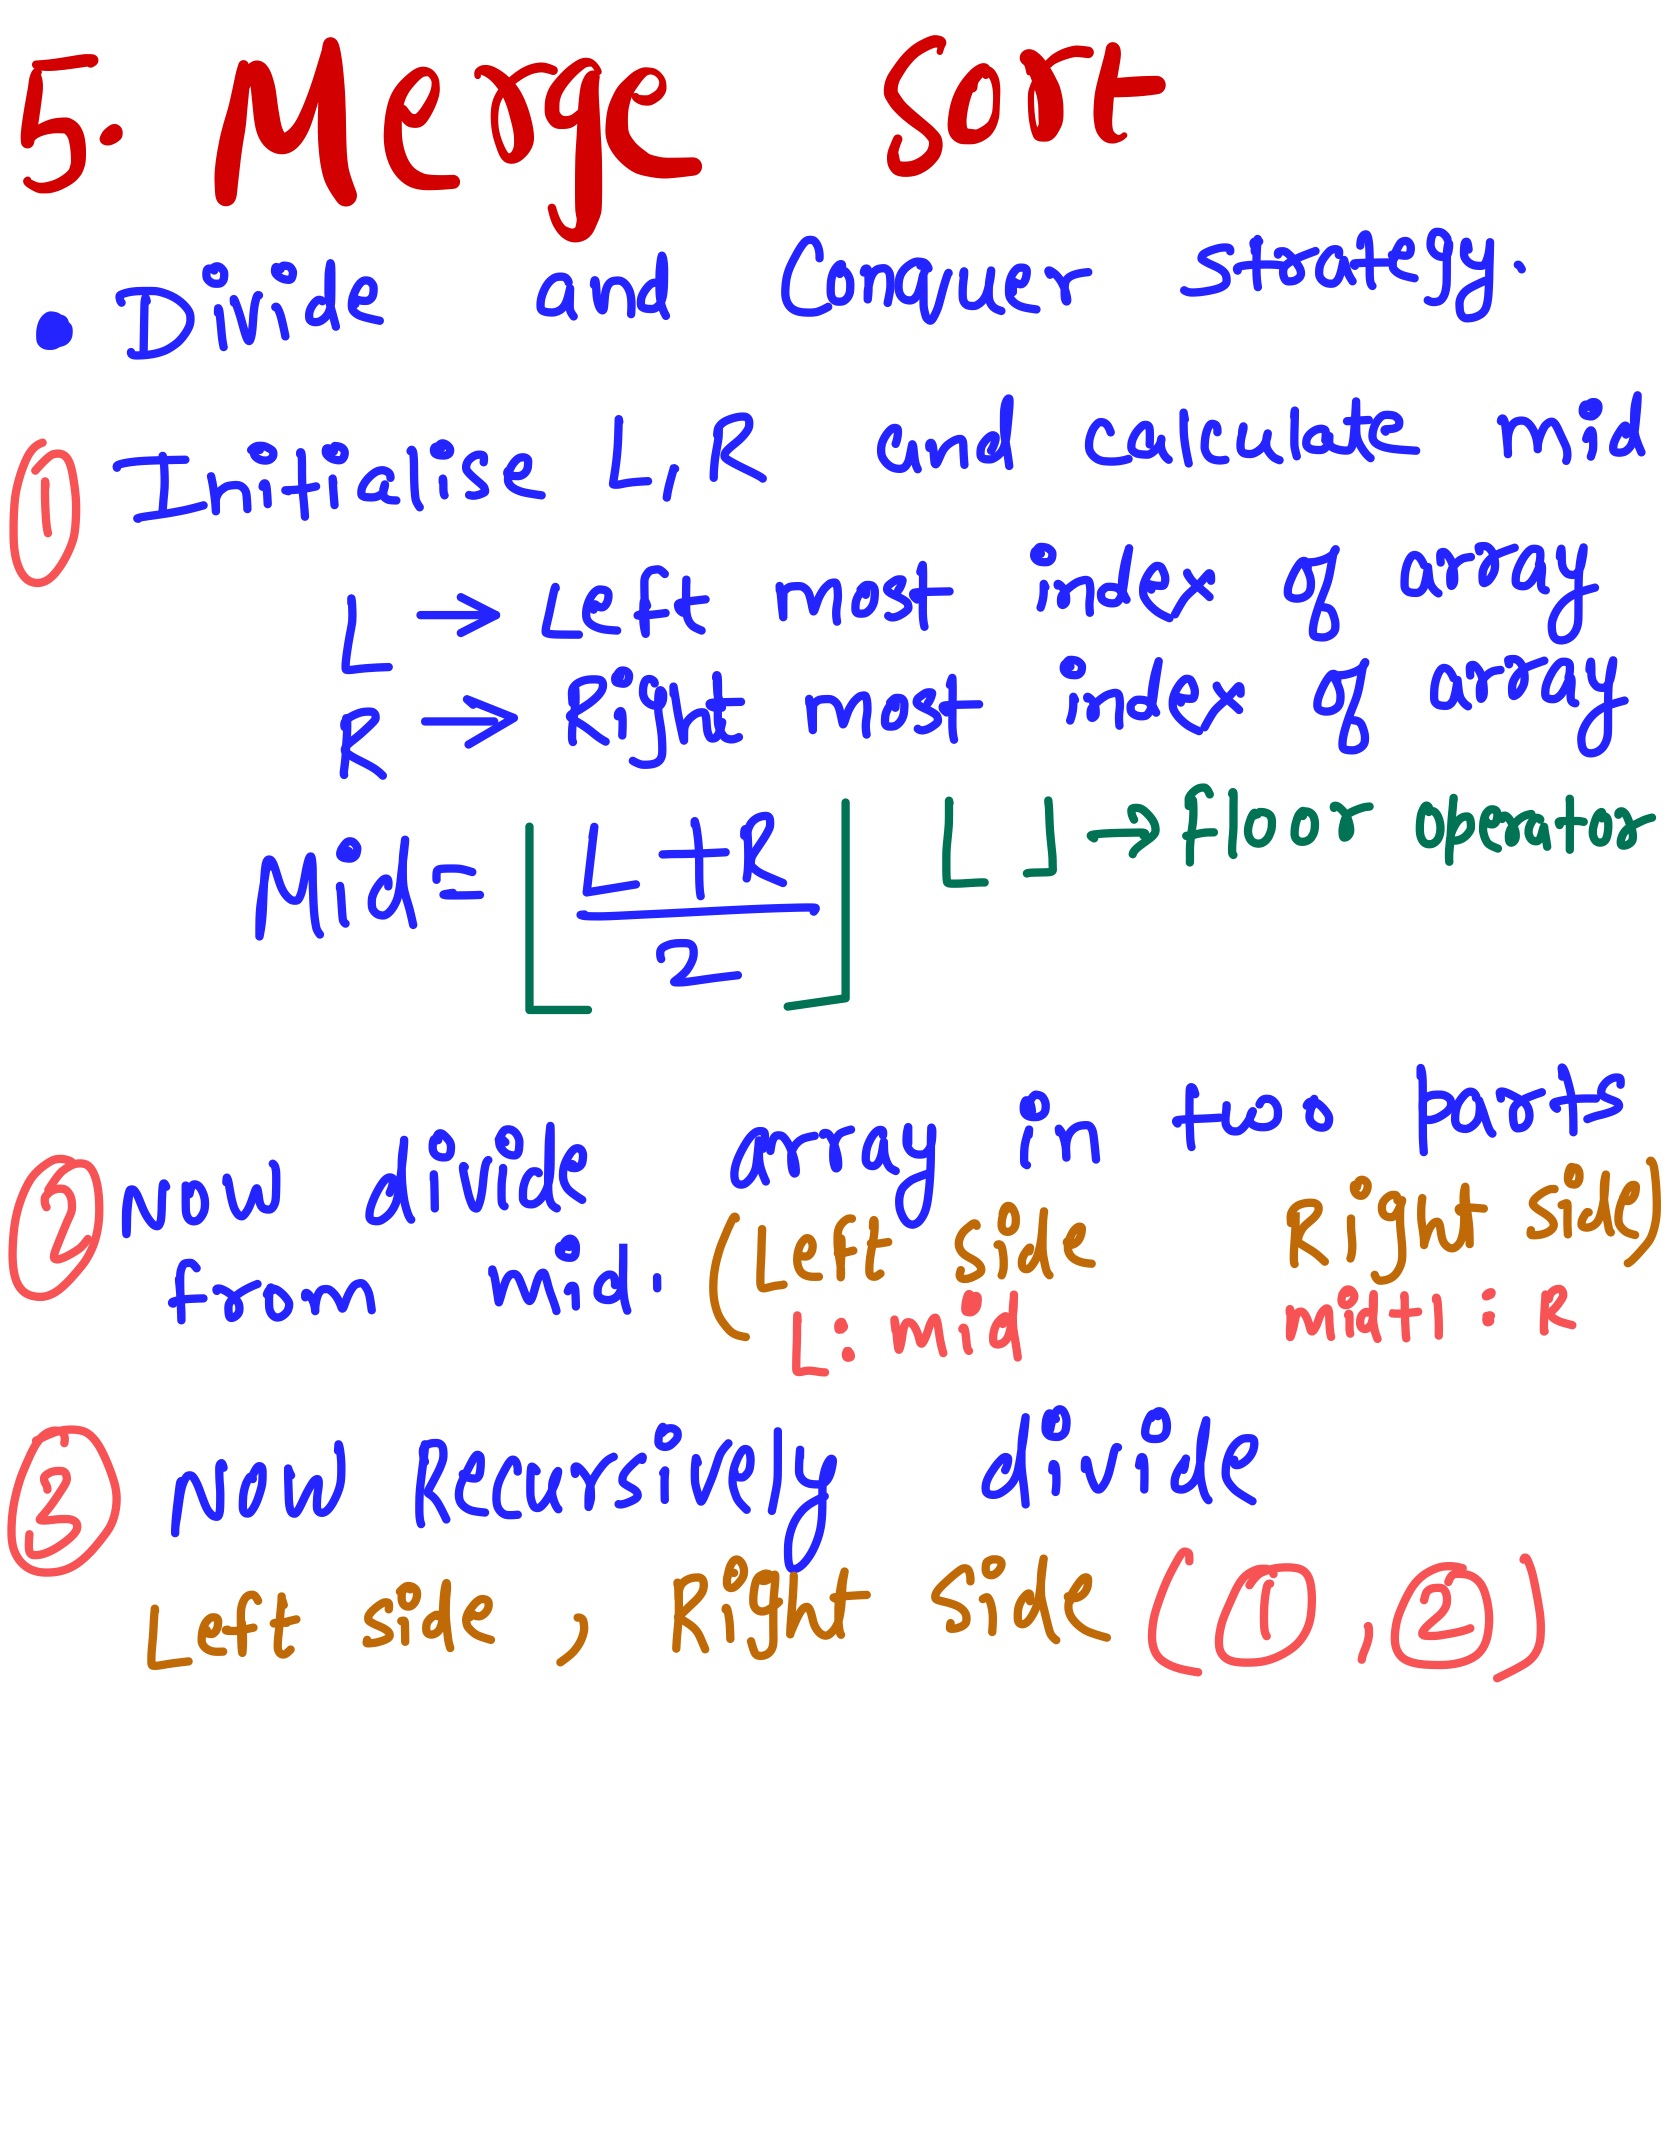 5. Merge Sort
• Divide and Conquer strategy.
① Initialise L, R and calculate mid
L → Left most index of array
R → Right most index of array
Mid = ⌊(L + R)/2⌋ ⌊ ⌋ → floor operator
② Now divide array in two parts
from mid. (Left side Right side)
L: mid mid+1 : R
③ Now Recursively divide
Left side , Right Side (① , ②)